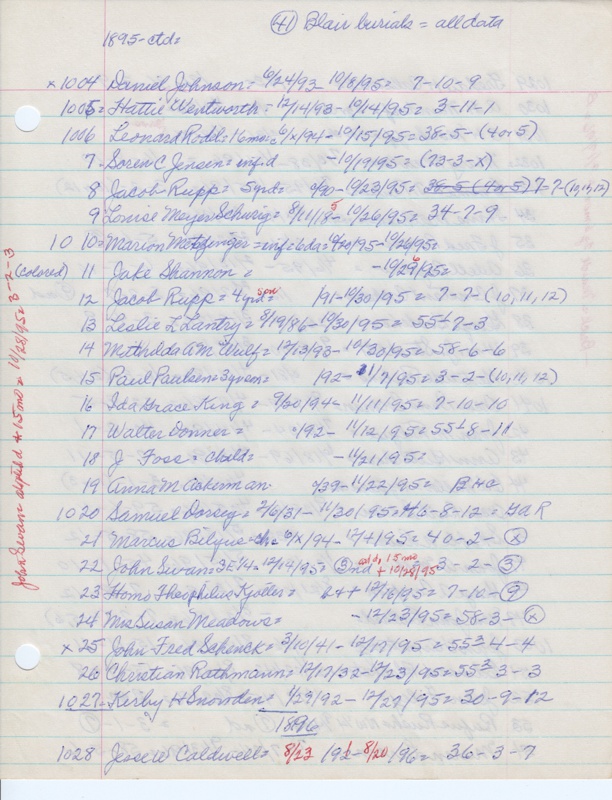 (41) Blair burials = all data
1895-ctd=
x 1004 Daniel Johnson = 6/24/93 10/8/95 = 7-10-9
1005 = Hattie Wentworth = 12/14/93 - 10/14/95 = 3-11-1
1006 Leonard Rodd = 16mo = 6/x/94 - 10/15/95 = 38-5-(4 or 5)
7 - Soren C Jensen = inf d - 10/19/95 = (73-3-x)
8 Jacob Rupp = 5yrd = 0/90 - 10/23/95 = 36-5 (4 or 5) 7-7-(10,11,12)
9 Louise Meyer Schurig = 8/11/18 - 10/26/95 = 34-7-9
10 10 = Marion = inf = 6da = 10/20/95 - 10/26/95 =
(colored) 11 Jake Shannon = - 10/29/95 =
12 Jacob Rupp = 4yrd = son 191 - 10/30/95 = 7-7-(10,11,12)
13 Leslie L Lantry = 8/19/86 - 10/30/95 = 55½-7-3
14 Methilda A M Wulf = 12/13/93 - 10/30/95 = 58-6-6
15 Paul Paulsen = 3yrson = 192 - 11/7/95 = 3-2-(10,11,12)
16 Ida Grace King = 9/20/94 - 11/11/95 = 7-10-10
17 Walter Donner = 0/92 - 11/12/95 = 55½ 8-11
18 J Foss = child = - 11/21/95 =
19 Anna M Ackerman 0/39 - 11/22/95 =
1020 Samuel Dorsey = 2/6/31 - 11/30/95 = 46-8-12 = GaR
21 Marcus = 6/x/94 - 12/1/95 = 40-2-(x)
22 John Swan = SE¼ = 12/14/95 = 3nd = 3-2-(3)
ad d, 15 mo + 10/28/95
23 Homo Theophilus 12/16/95 = 7-10-(9)
24 Mrs Susan Meadows = - 12/23/95 = 58-3-(x)
x 25 John Fred Schenck = 3/10/41 - 12/17/95 = 55½-4-4
26 Christian Rathmann = 12/17/32 - 12/23/95 = 55½ 3-3
1027 - Kerby H Snowden = 1/23/92 - 12/27/95 = 30-9-12
1896
1028 Jesse W Caldwell = 8/23 /92 - 8/20 /96 = 36-3-7
John Swan 15mo = 10/28/95 = 3-2-3